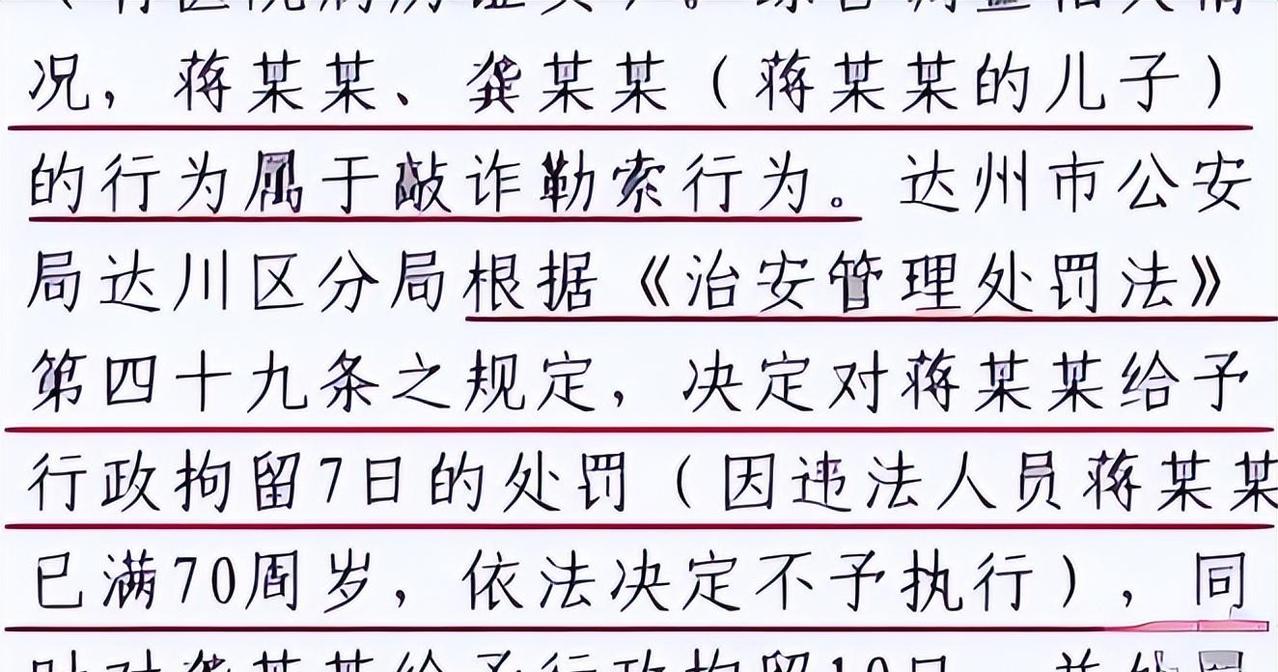 况，蒋某某、龚某某（蒋某某的儿子）
的行为属于敲诈勒索行为。达州市公安
局达川区分局根据《治安管理处罚法》
第四十九条之规定，决定对蒋某某给予
行政拘留7日的处罚（因违法人员蒋某某
已满70周岁，依法决定不予执行），同
时对龚某某给予行政拘留10日，并处罚